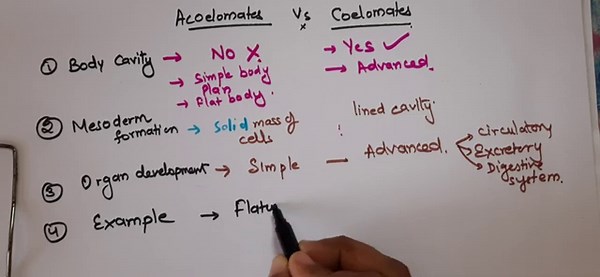 Acoelomates Vs Coelomates
① Body Cavity → No X → Yes ✓
→ Simple body plan → Advanced.
→ Flat body.
② Mesoderm formation → Solid mass of cells : lined cavity.
③ Organ development → Simple — Advanced. circulatory
Excretory
Digestive system.
④ Example → Flatw